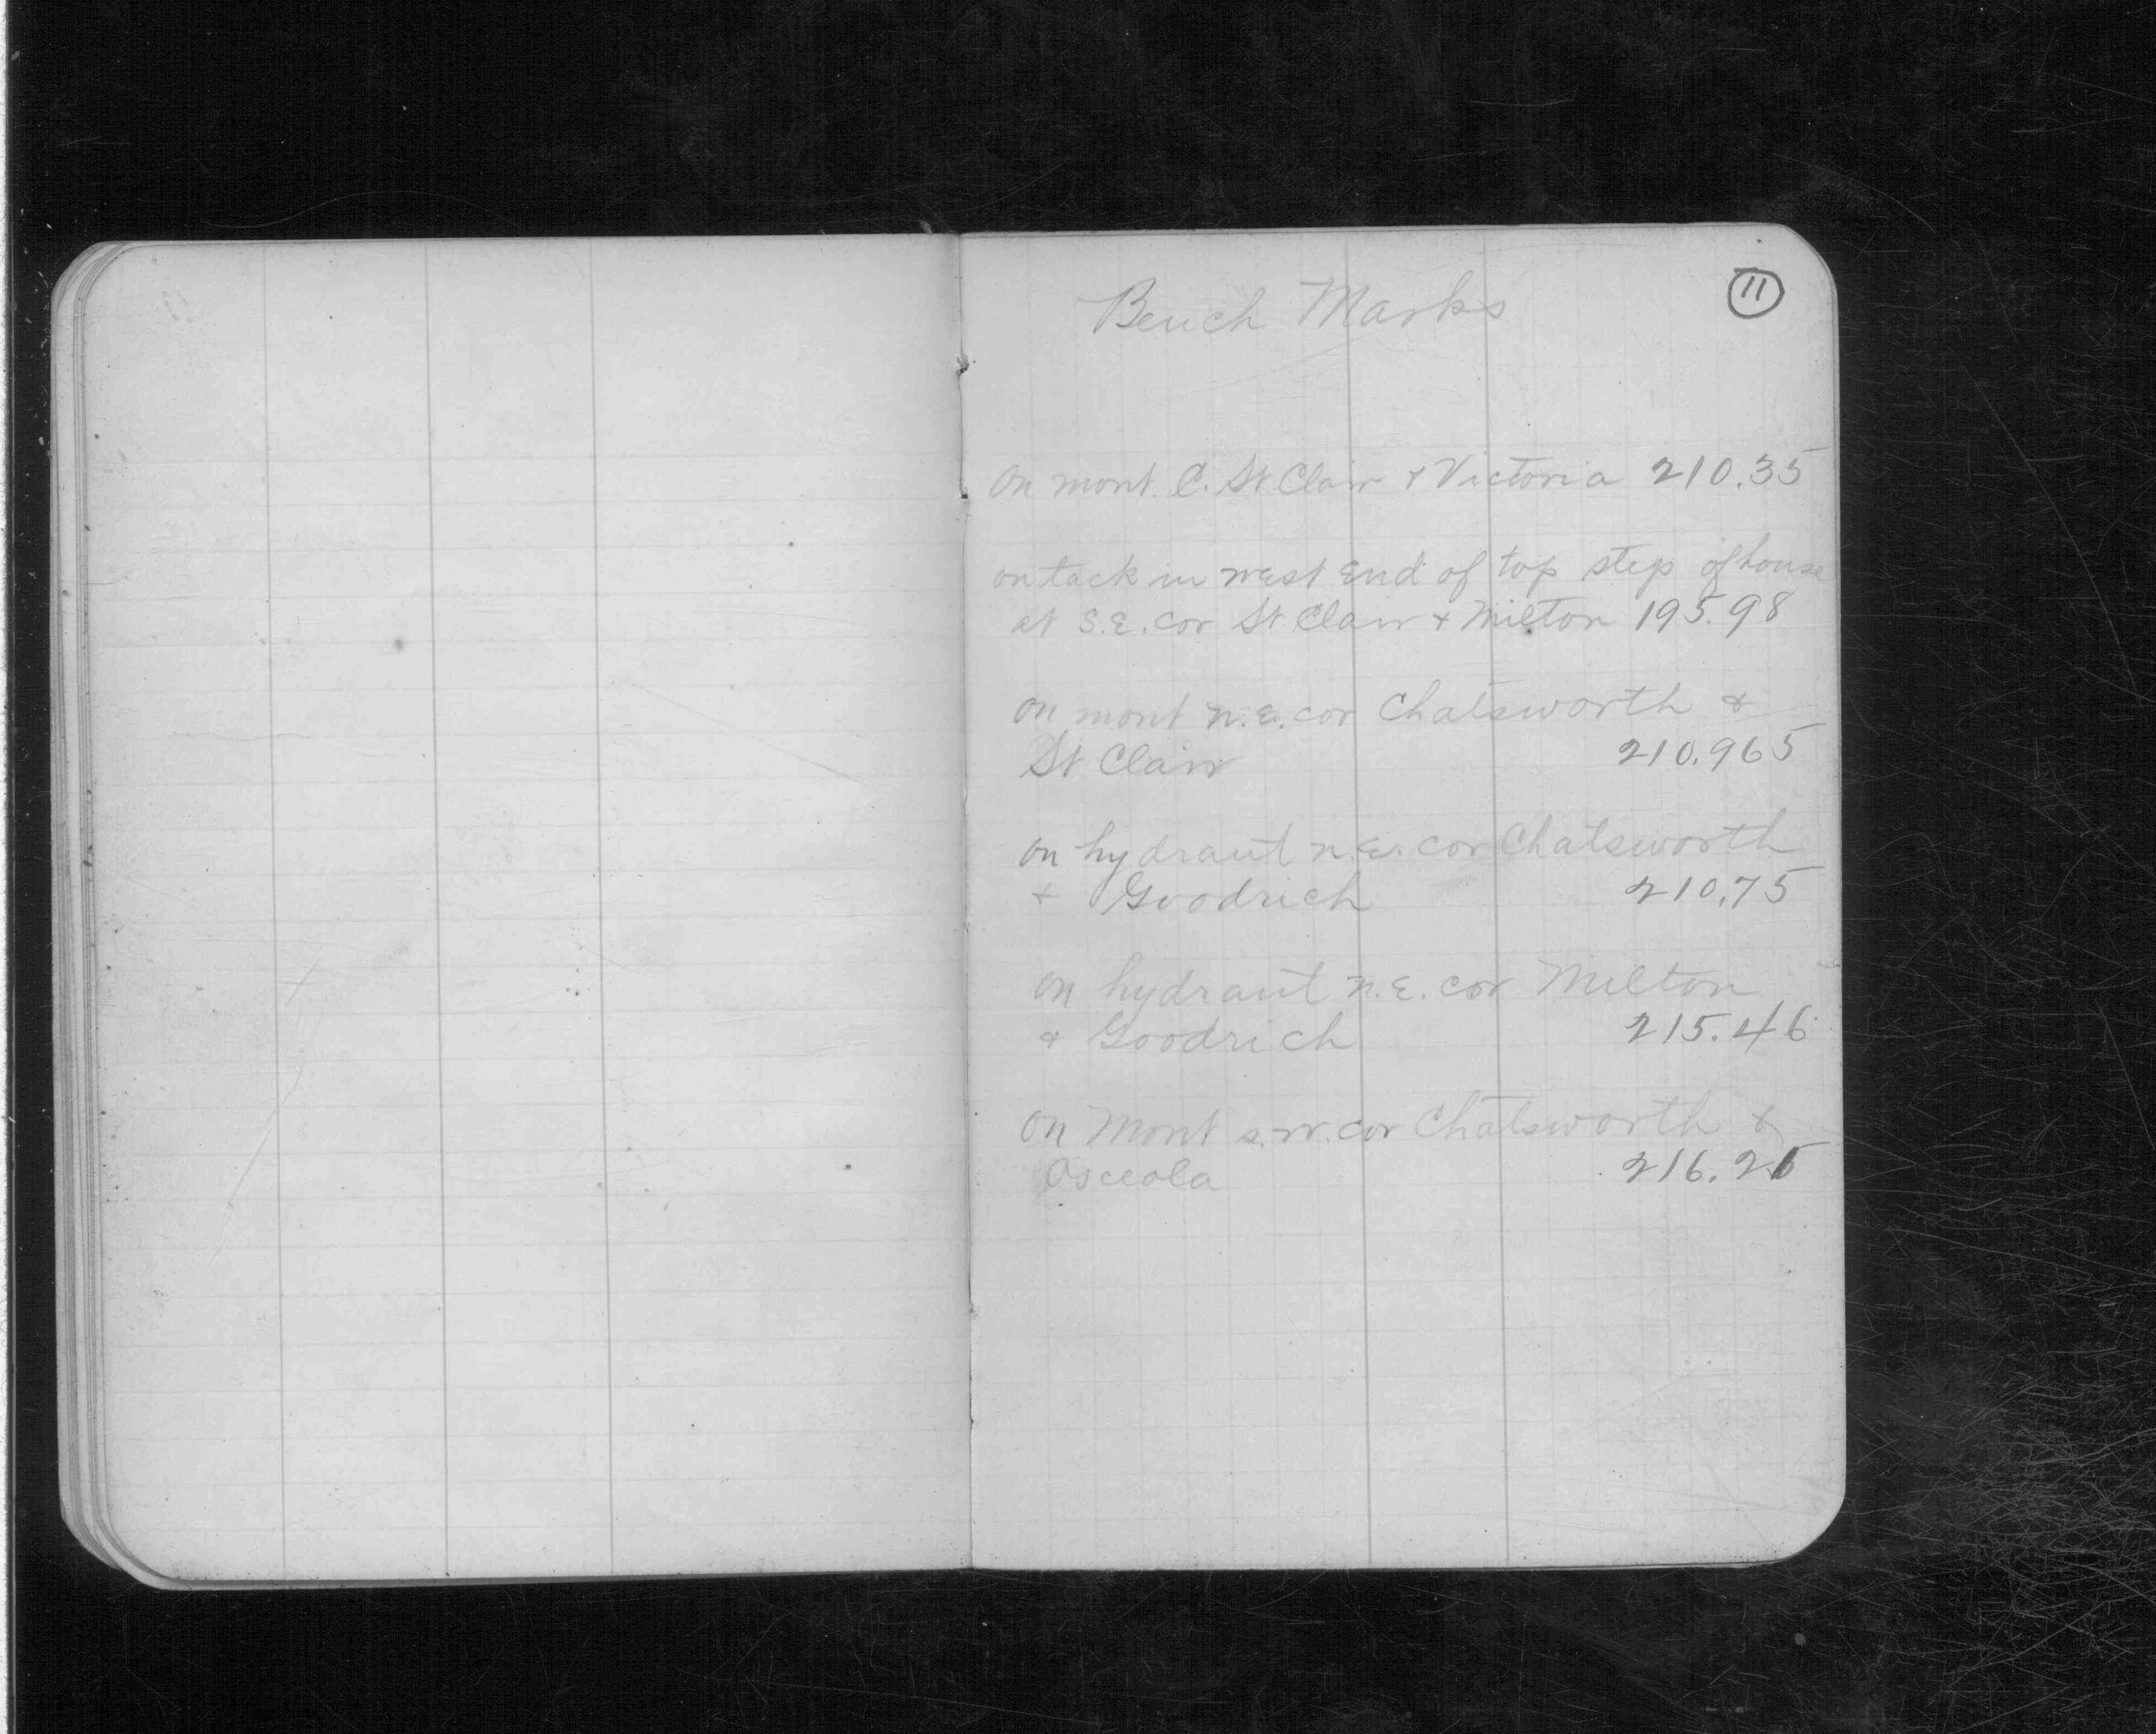 11
Bench Marks
On mont. C. St Clair & Victoria 210.35
on tack in west end of top step of house
at S.E. cor St Clair & Milton 195.98
on mont n.E. cor Chatsworth &
St Clair 210.965
on hydrant n.E. cor Chatsworth
& Goodrich 210.75
on hydrant n.E. cor Milton
& Goodrich 215.46
on Mont s.w. cor Chatsworth &
Osceola 216.25